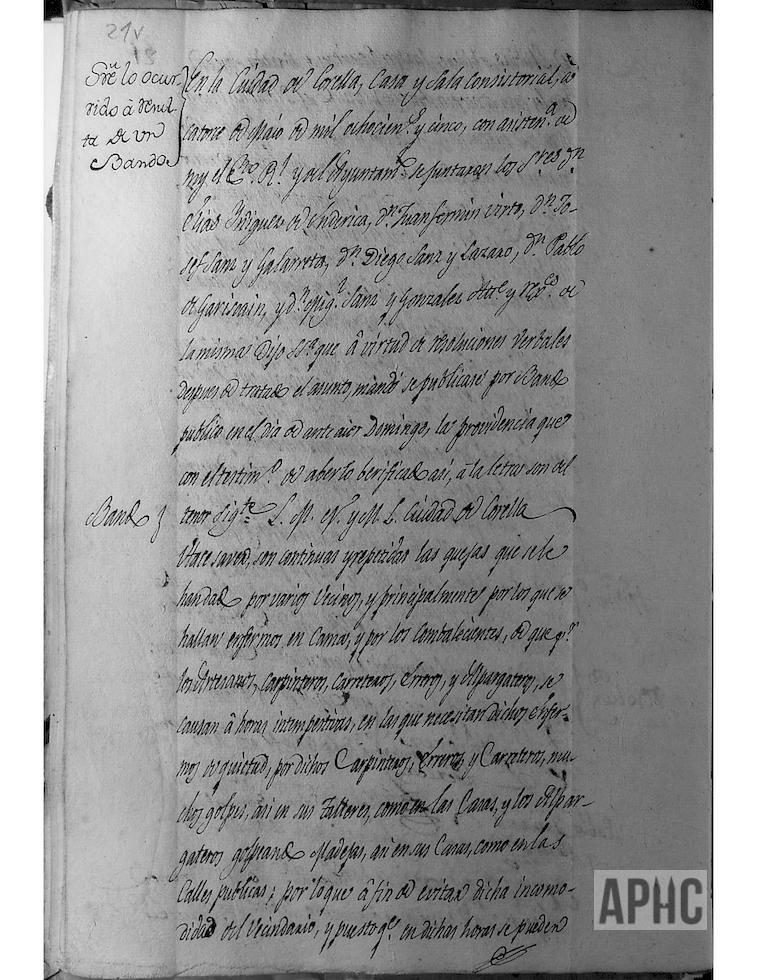 21v
Sre. lo ocur-
rido à resul-
ta de un
Bando
En la Ciudad de Corella, Casa y Sala Consistorial, à
catorce de Maio de mil ochocien.s y cinco, con asisten.a de
mi el Essno. R.l y del Ayuntam.to se juntaron los S.res d.n
Elias Yñiguez de Enderica, d.n Juan fermin virto, d.n Jo-
sef Sanz y Galarreta, d.n Diego Sanz y Lazaro, d.n Pablo
de Garisoain, y d.n Mig.l Sanz y Gonzalez Alc.e y Rex.es de
la misma Dijo S.Sa que à virtud de resoluciones verbales
despues de tratado el asunto, mandó se publicase por Bando
publico en el dia de ante aier Domingo, la providencia que
con el testim.o de aberlo berificado asi, à la letra son del
Bando }
tenor sig.te = L. M. N. y M. L. Ciudad de Corella
Hace saver, son continuas y repetidas las quejas que se le
han dado por varios Vecinos, y principalmente por los que se
hallan enfermos en Cama, y por los Combalecientes, de que p.r
los Artesanos, Carpinteros, Carreteros, Erreros, y Alpargateros, se
causan à horas intempestivas, en las que necesitan dichos Enfer-
mos de quietud, por dichos Carpinteros, Erreros, y Carreteros, mu-
chos golpes, asi en sus Talleres, como en las Casas, y los Alpar-
gateros golpeando Madejas, asi en sus Casas, como en las
Calles publicas; por lo que à fin de evitar dicha incomo-
didad del Vecindario, y puesto q.e en dichas horas se pueden
APHC